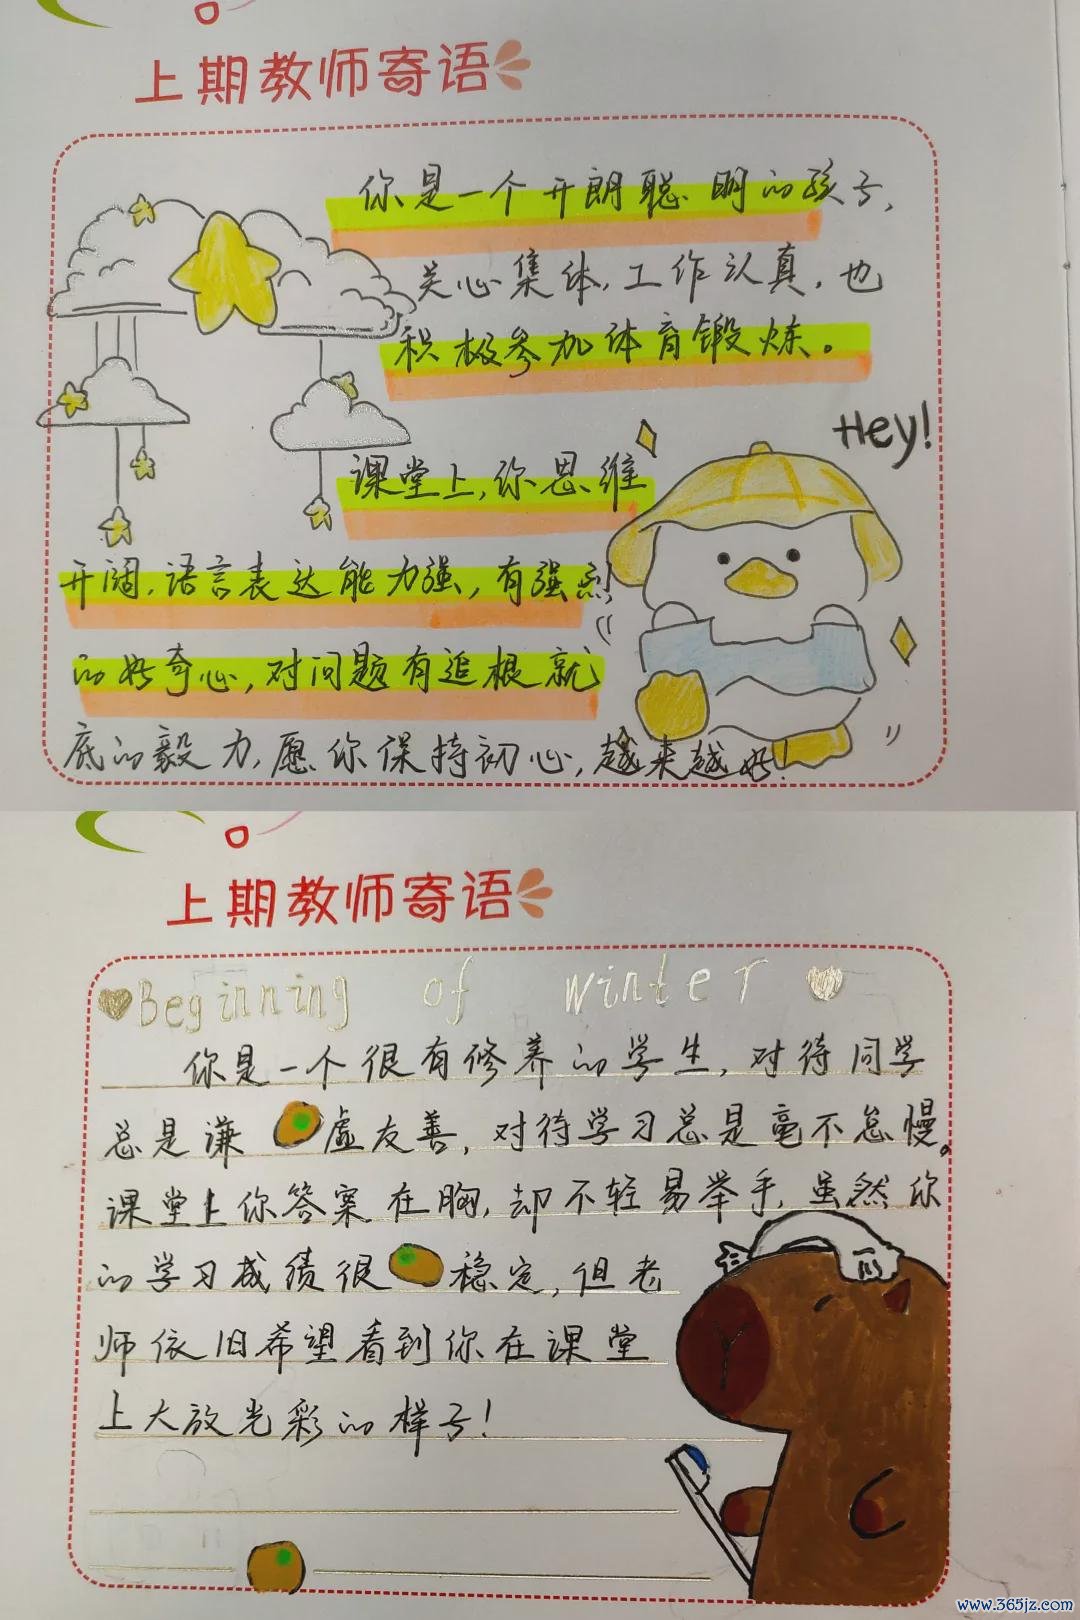 上期教师寄语
你是一个开朗聪明的孩子,
关心集体,工作认真,也
积极参加体育锻炼。
Hey!
课堂上,你思维
开阔,语言表达能力强,有强烈
的好奇心,对问题有追根就
底的毅力,愿你保持初心,越来越好!
上期教师寄语
Beginning of winter
你是一个很有修养的学生,对待同学
总是谦虚友善,对待学习总是毫不怠慢。
课堂上你答案在胸,却不轻易举手,虽然你
的学习成绩很稳定,但老
师依旧希望看到你在课堂
上大放光彩的样子!
www.365jz.com